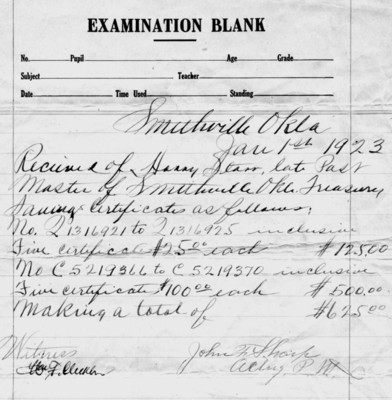 EXAMINATION BLANK
No. Pupil Age Grade
Subject Teacher
Date Time Used Standing
Smithville Okla
Jan 1st 1923
Recieved of Harry Starr, late Post
Master of Smithville Okla Treasury
Saving certificates as follows;
No. 21316921 to 21316925 inclusive
Five certificate $25.00 each $125.00
No C 5219366 to C 5219370 inclusive
Five certificate $100.00 each $500.00
Making a total of $625.00
Witness John T. Sharp
Acting P.M.